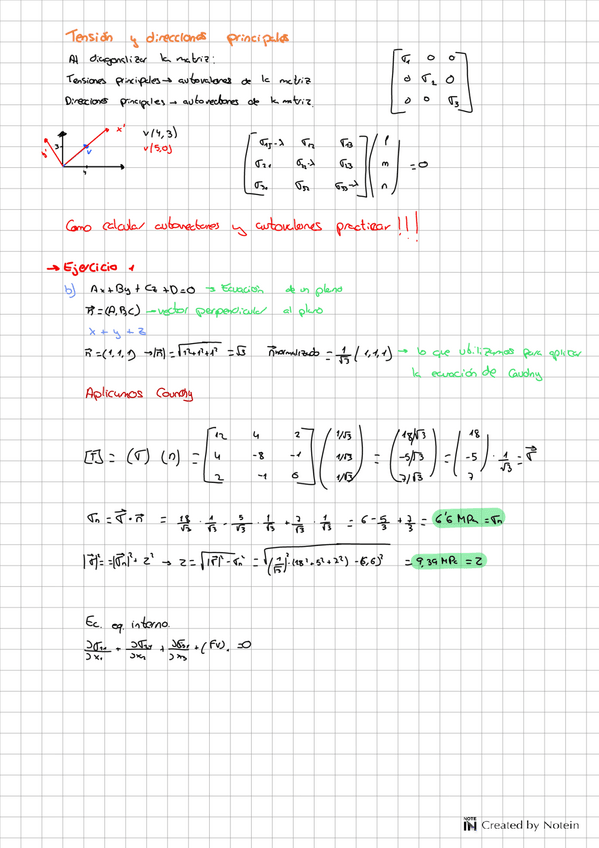 Tensión y direcciones principales
Al diagonalizar la matriz:
Tensiones principales → autovalores de la matriz
Direcciones principales → autovectores de la matriz.
[σ1 0 0
0 σ2 0
0 0 σ3]
x'
v(4,3)
v(5,0)
y'
3
v
4
[σ11-λ σ12 σ13
σ21 σ22-λ σ23
σ31 σ32 σ33-λ] (l
m
n) = 0
Como calcular autovectores y autovalores practicar!!!
→ Ejercicio 1
b) Ax + By + Cz + D = 0 → Ecuación de un plano
n⃗ = (A, B, C) → vector perpendicular al plano
x + y + z
n⃗ = (1, 1, 1) → |n⃗| = √1²+1²+1² = √3 n⃗ normalizado = 1/√3 (1,1,1) → lo que utilizamos para aplicar
la ecuación de Cauchy
Aplicamos Couchy
[σ⃗] = (σ) (n) = [12 4 2
4 -8 -1
2 -1 6] (1/√3
1/√3
1/√3) = (18/√3
-5/√3
7/√3) = (18
-5
7) · 1/√3 = σ⃗
σn = σ⃗ · n⃗ = 18/√3 · 1/√3 - 5/√3 · 1/√3 + 7/√3 · 1/√3 = 6 - 5/3 + 7/3 = 6'6 MPa = σn
|σ⃗|² = |σ⃗n|² + Z² → Z = √|σ⃗|² - σn² = √(1/√3)² · (18² + 5² + 7²) - (6,6)² = 9,39 MPa = Z
Ec. eq. interno.
+ + + (FV). = 0
NOTE IN Created by Notein